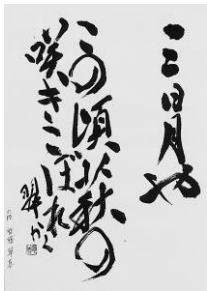 三日月や
この頃萩の
咲きこぼれ
翠かく